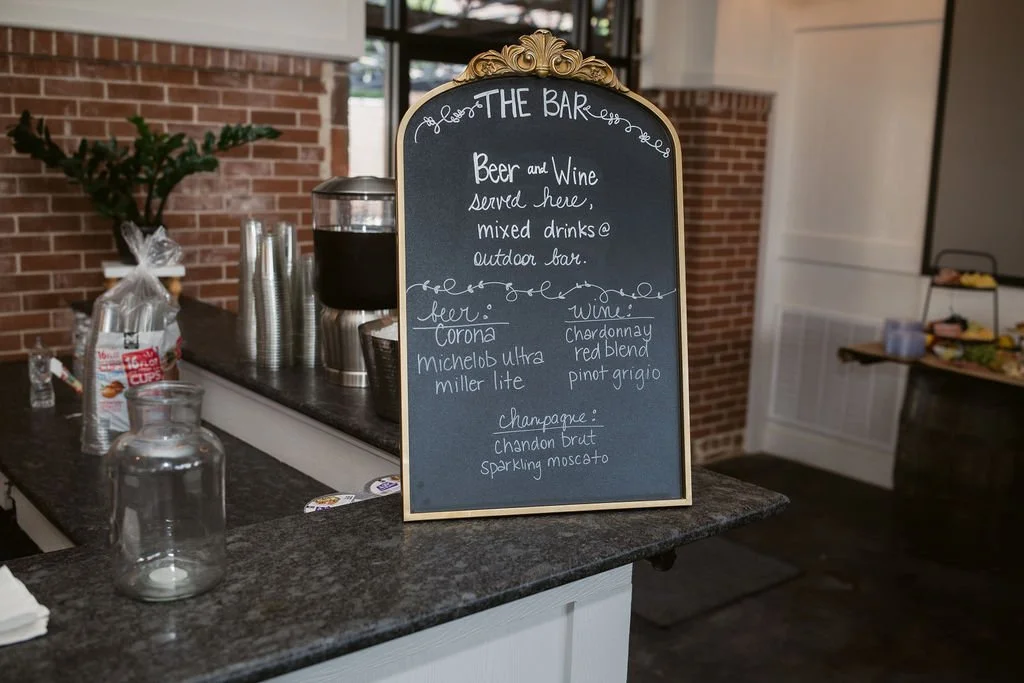 THE BAR
Beer and Wine
served here,
mixed drinks @
outdoor bar.
beer:
Corona
michelob ultra
miller lite
wine:
chardonnay
red blend
pinot grigio
champagne:
chandon brut
sparkling moscato
16 FL OZ
CUPS